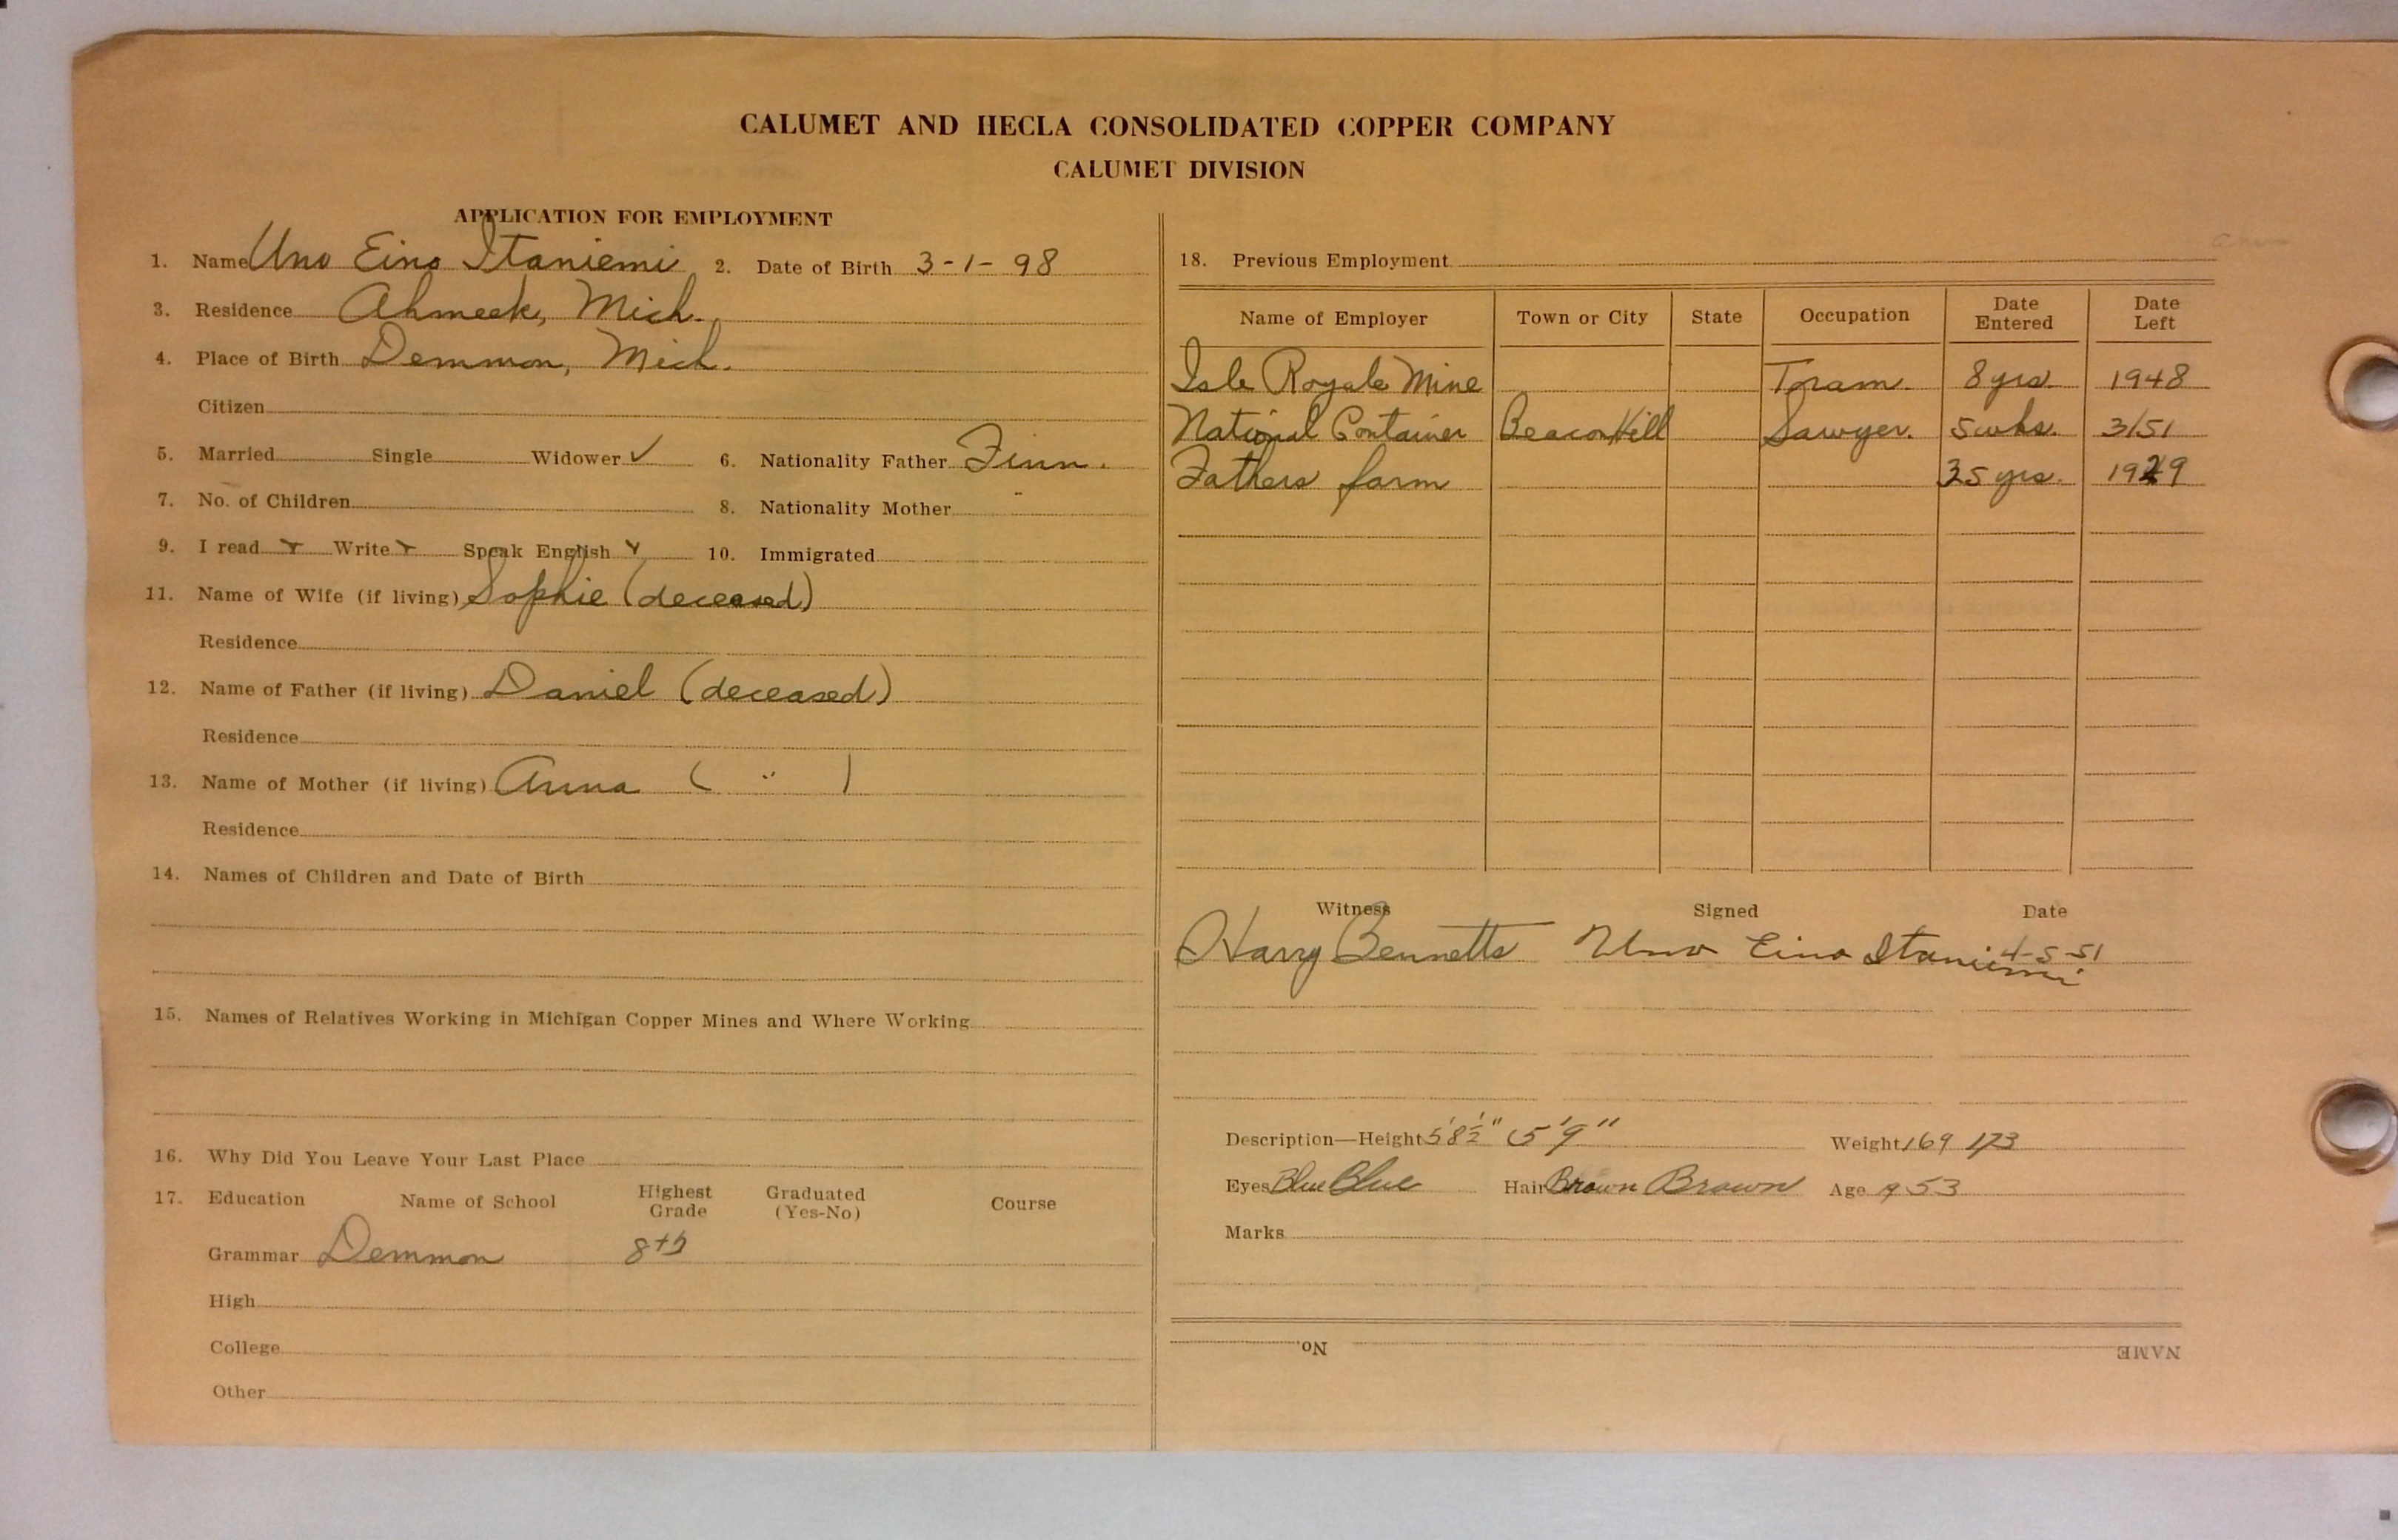 CALUMET AND HECLA CONSOLIDATED COPPER COMPANY
CALUMET DIVISION
APPLICATION FOR EMPLOYMENT
1. Name Uno Eino Staniemi 2. Date of Birth 3-1-98
3. Residence Ahmeek, Mich.
4. Place of Birth Demmon, Mich.
Citizen
5. Married Single Widower ✓ 6. Nationality Father Finn.
7. No. of Children 8. Nationality Mother "
9. I read ✓ Write ✓ Speak English ✓ 10. Immigrated
11. Name of Wife (if living) Sophie (deceased)
Residence
12. Name of Father (if living) Daniel (deceased)
Residence
13. Name of Mother (if living) Anna ( " )
Residence
14. Names of Children and Date of Birth
15. Names of Relatives Working in Michigan Copper Mines and Where Working
16. Why Did You Leave Your Last Place
17. Education Name of School Highest Grade Graduated (Yes-No) Course
Grammar Demmon 8th
High
College
Other
18. Previous Employment
Name of Employer Town or City State Occupation Date Entered Date Left
Isle Royale Mine Tram. 8 yrs. 1948
National Container Beacon Hill Sawyer. 5 wks. 3/51
Fathers farm 35 yrs. 1929
Witness Signed Date
Harry Bennetts Uno Eino Staniemi 4-5-51
Description—Height 5'8½" 5'9" Weight 169 173
Eyes Blue Blue Hair Brown Brown Age 53
Marks
No.
NAME